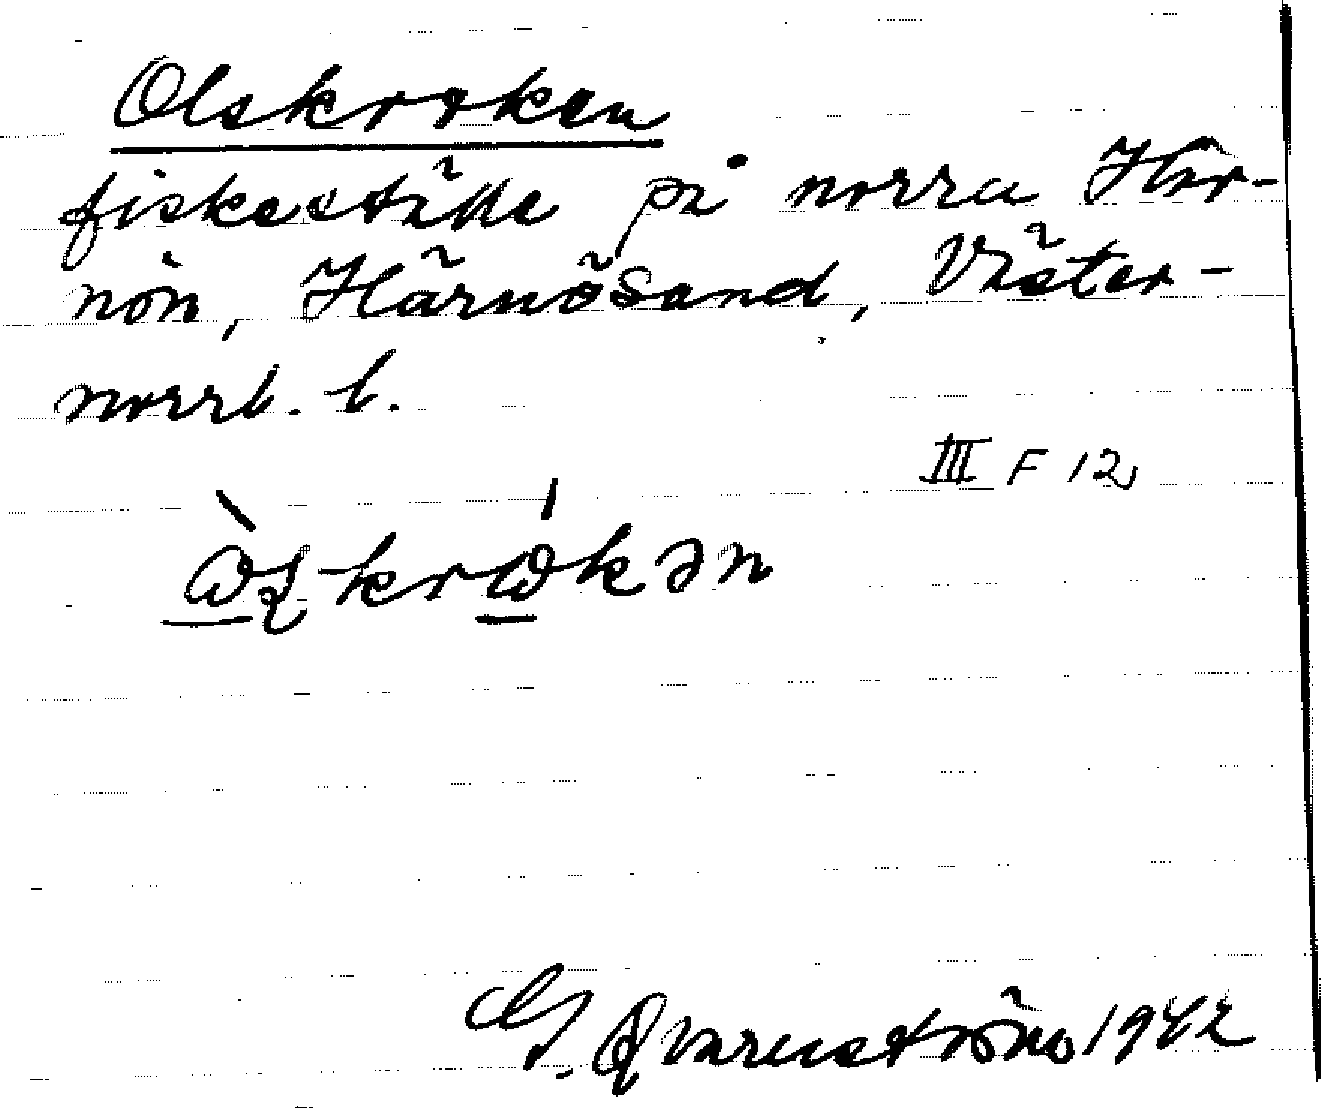 Olskroken
fiskeställe på norra Här-
nön, Härnösand, Väster-
norrl. l.
III F 12
G. Qvarnström 1942